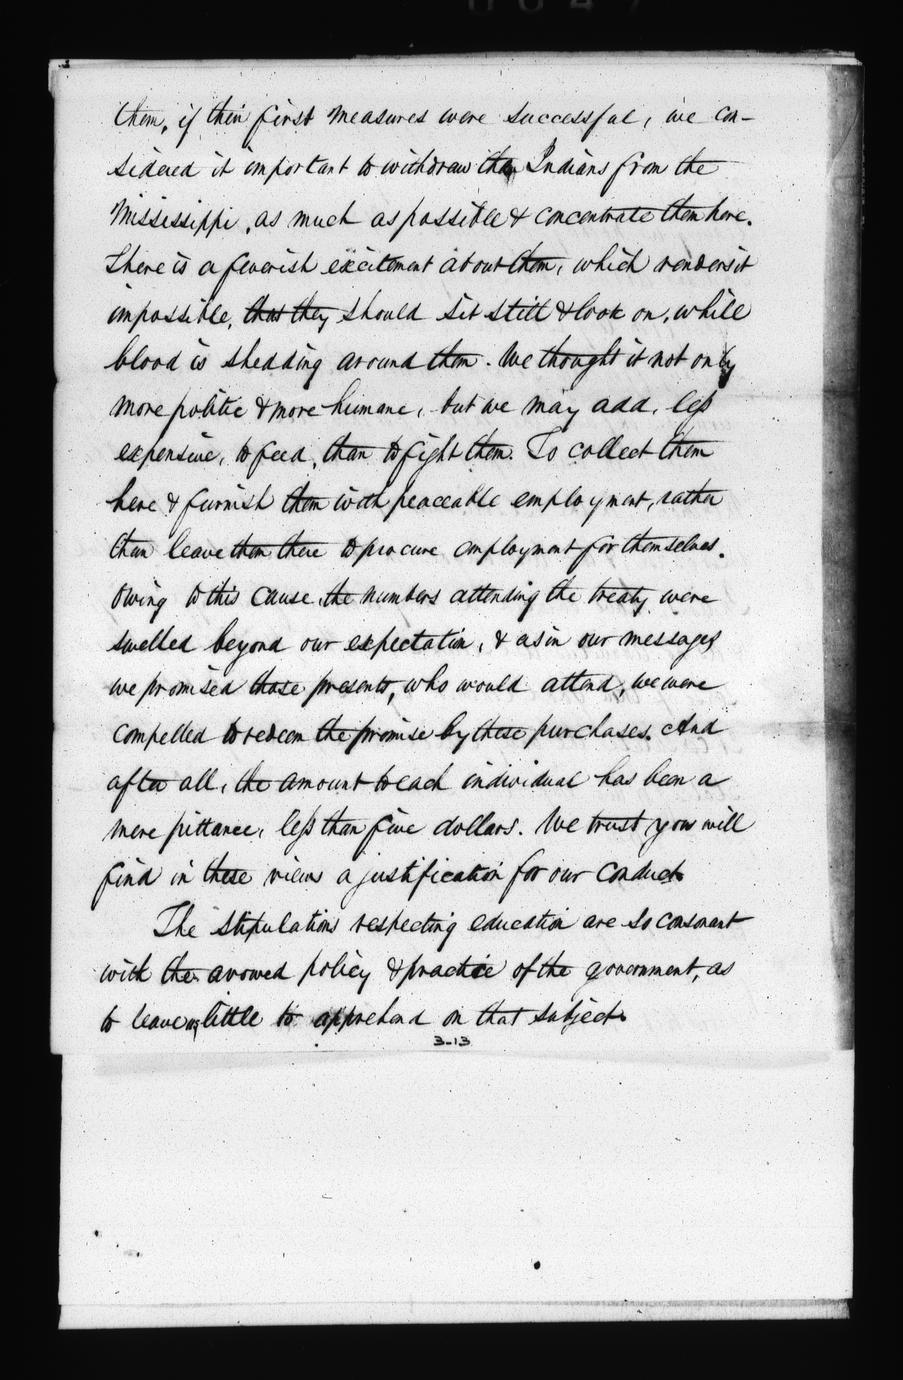 them, if their first measures were successful, we con-
sidered it important to withdraw the Indians from the
Mississippi, as much as possible & concentrate them here.
There is a feverish excitement about them, which renders it
impossible, that they should sit still & look on, while
blood is shedding around them. We thought it not only
more politic & more humane, but we may add, less
expensive, to feed, than to fight them. To collect them
here & furnish them with peaceable employment, rather
than leave them there to procure employment for themselves.
Owing to this cause, the numbers attending the treaty were
swelled beyond our expectation, & as in our messages
we promised those presents, who would attend, we were
compelled to redeem the promise by these purchases. And
after all, the amount to each individual has been a
mere pittance, less than five dollars. We trust you will
find in these views a justification for our conduct.
The stipulations respecting education are so consonant
with the avowed policy & practice of the government, as
to leave us little to apprehend on that subject.
3-13